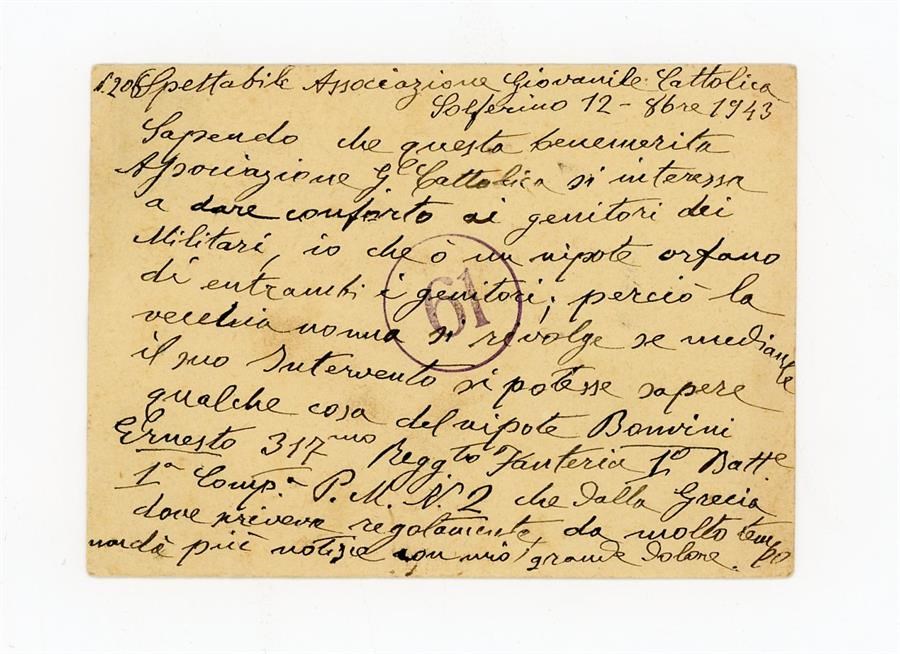 Spettabile Associazione Giovanile Cattolica
Solferino 12 - 8bre 1943
Sapendo che questa benemerita
Associazione G. Cattolica si interessa
a dare conforto ai genitori dei
Militari, io che ò un nipote orfano
di entrambi i genitori; perciò la
vecchia nonna si rivolge se mediante
il suo Intervento si potesse sapere
qualche cosa del nipote Bonvini
Ernesto 317mo Reggto Fanteria 1º Batt.e
1ª Comp.a P. M. N. 2 che dalla Grecia
dove scriveva regolarmente da molto tempo
non dà più notizie con mio grande dolore.
61